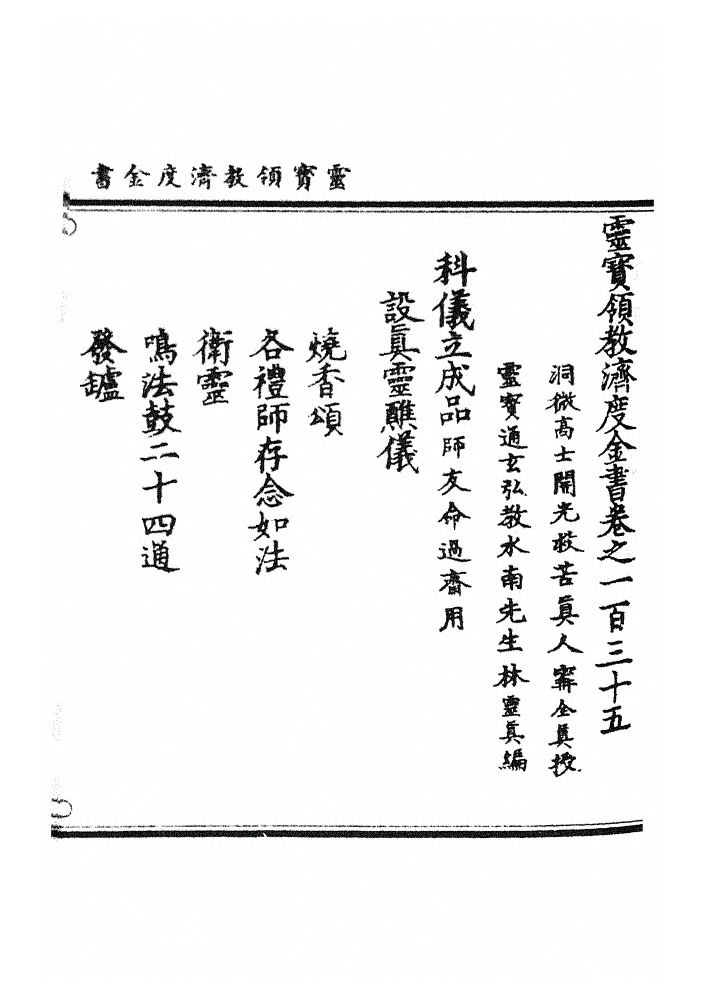 靈寶領教濟度金書
靈寶領教濟度金書卷之一百三十五
洞微高士開光救苦眞人寗全眞授
靈寶通玄弘教水南先生林靈眞編
科儀立成品師友命過齋用
設眞靈醮儀
燒香頌
各禮師存念如法
衛靈
鳴法鼓二十四通
發鑪